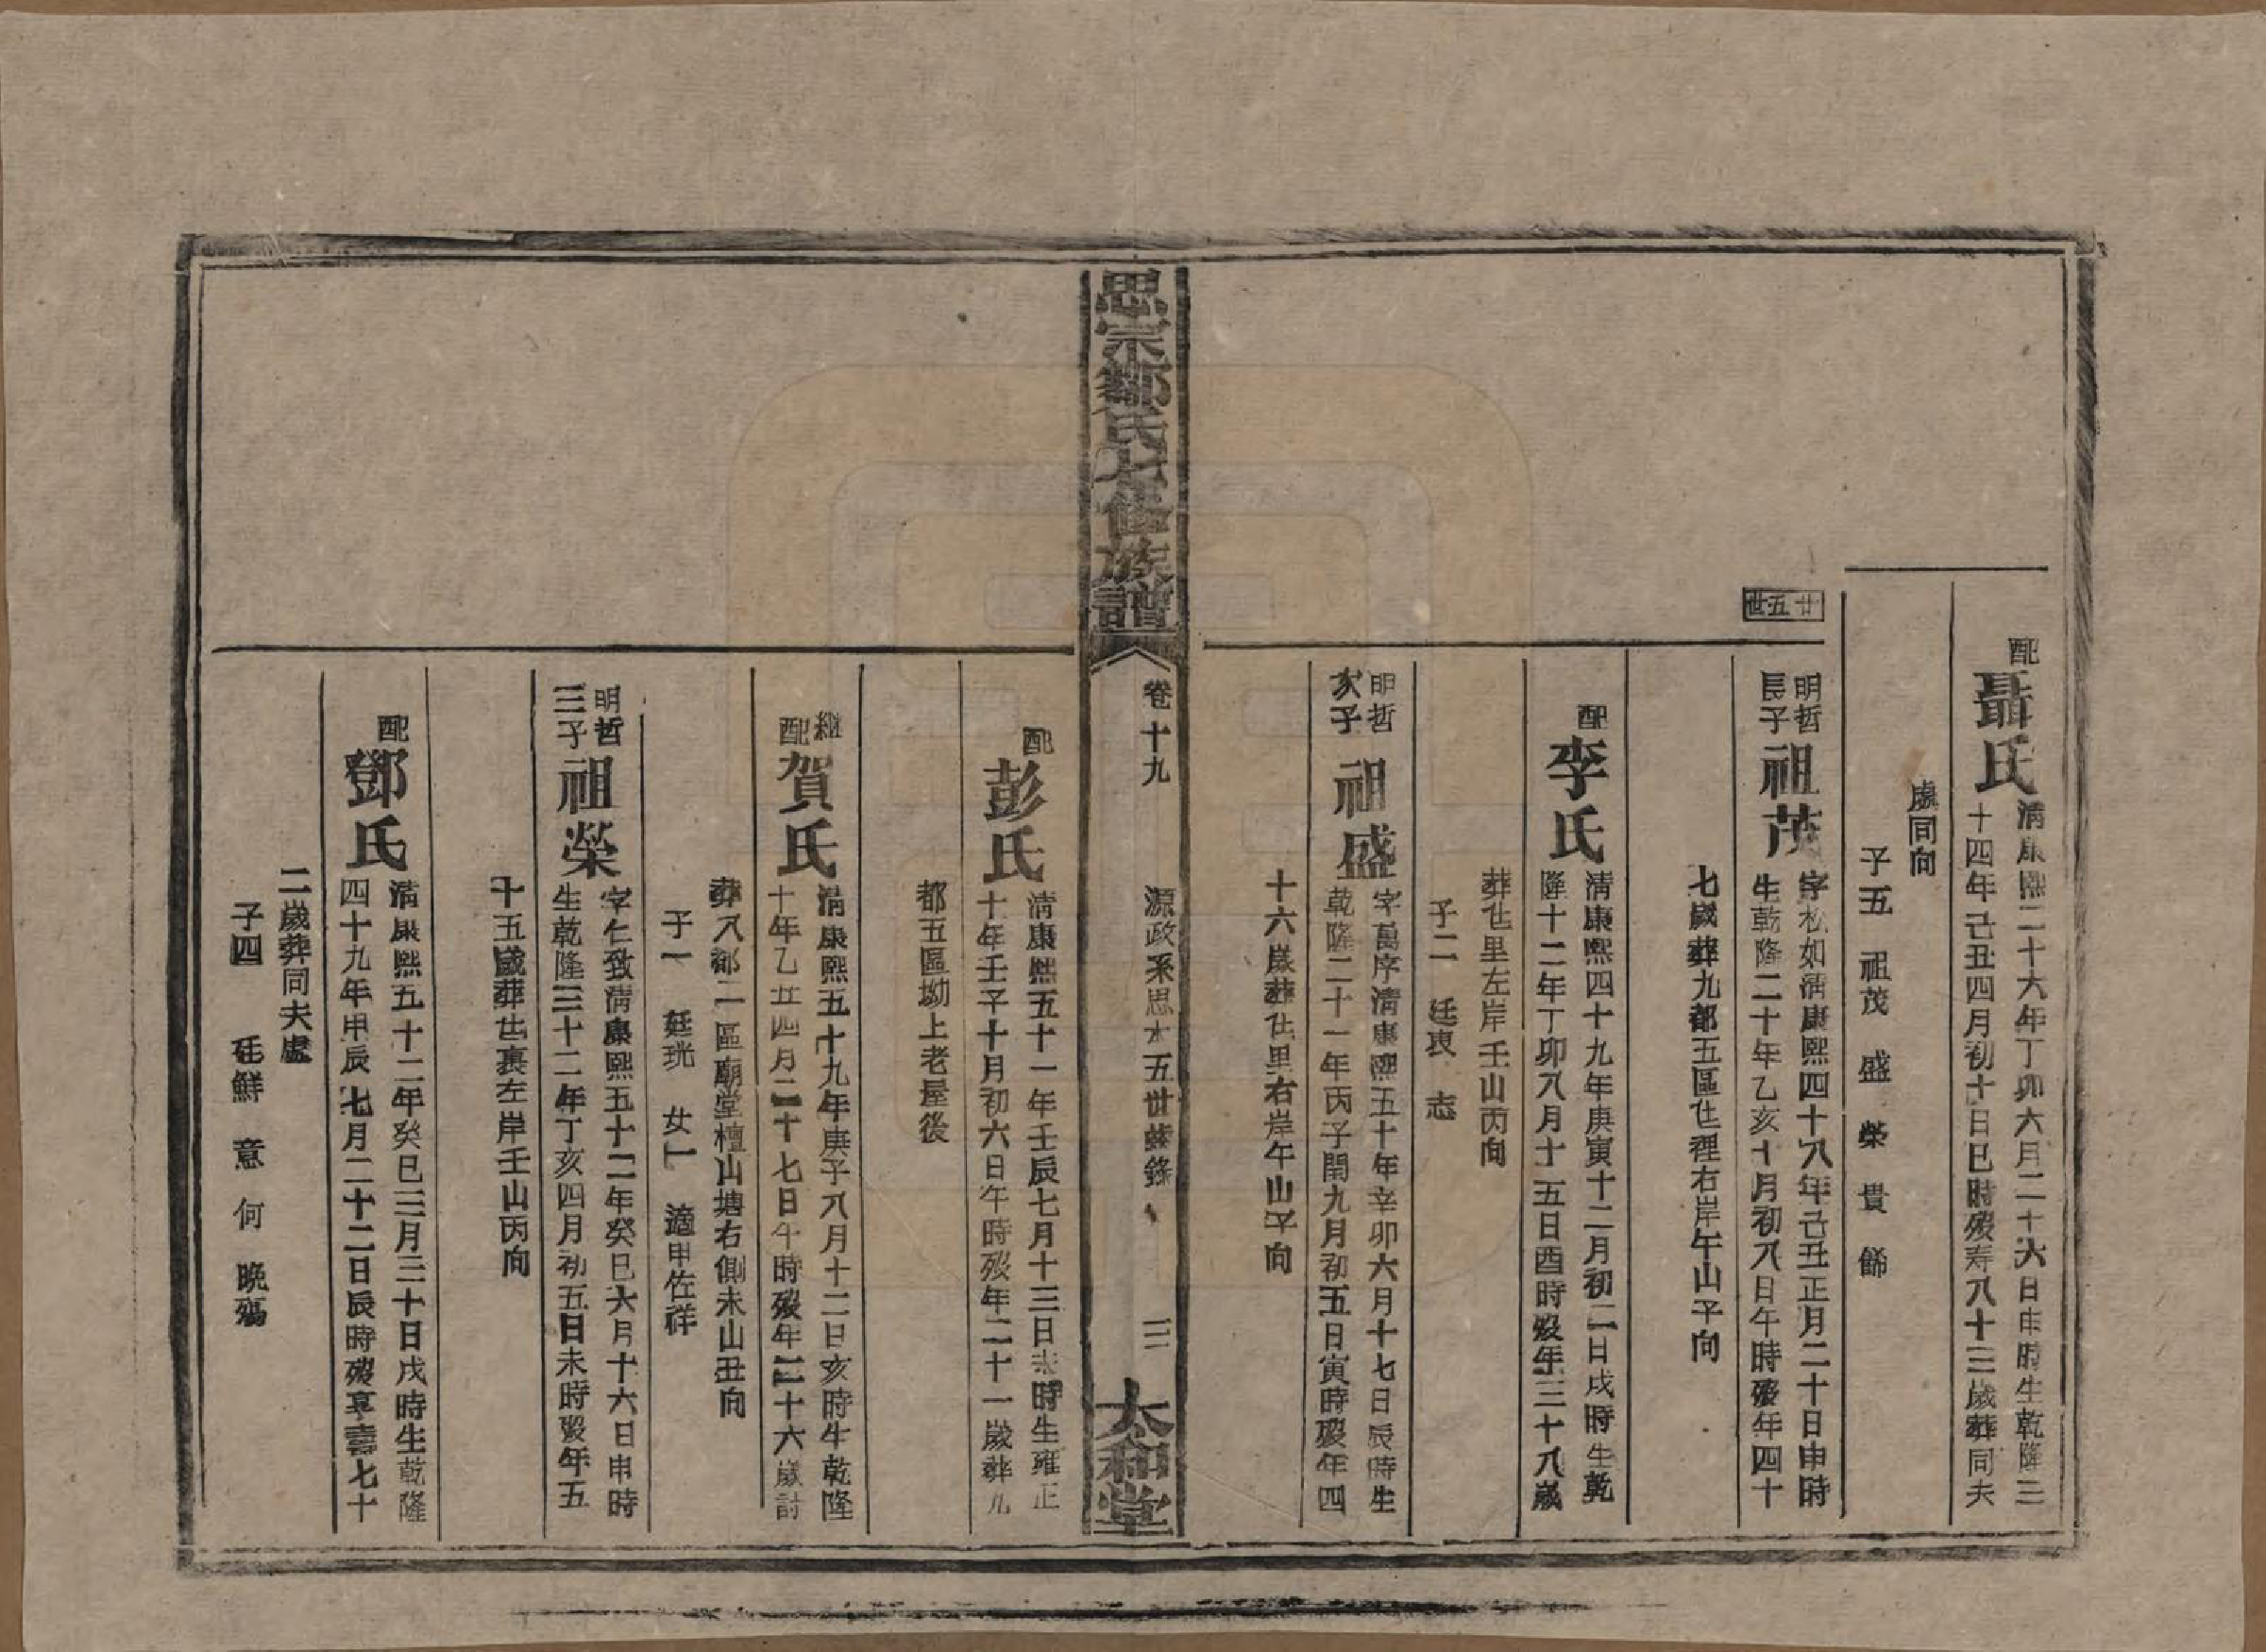 配
聶氏
清康熙二十六年丁卯六月二十六日申時生乾隆三
十四年己丑四月初十日巳時歿寿八十三歲葬同夫
處同向
子五 祖茂 盛 榮 貴
廿五世
明哲
長子
祖茂
字松如清康熙四十八年己丑正月二十日申時
生乾隆二十年乙亥十月初八日午時歿年四十
七歲葬九都五區仕裡右岸午山子向
配
李氏
清康熙四十九年庚寅十二月初二日戌時生乾
隆十二年丁卯八月十五日酉時歿年三十八歲
葬仕里左岸壬山丙向
子二 廷衷 志
明哲
次子
祖盛
字萬序清康熙五十年辛卯六月十七日辰時生
乾隆二十一年丙子閏九月初五日寅時歿年四
十六歲葬仕里右岸午山子向
思宗鄒氏七修族譜
卷十九
源政系思木五世錄
三
太和堂
配
彭氏
清康熙五十一年壬辰七月十三日未時生雍正
十年壬子十月初六日午時歿年二十一歲葬九
都五區坳上老屋後
繼
配
賀氏
清康熙五十九年庚子八月十二日亥時生乾隆
十年乙丑四月二十七日午時歿年二十六歲討
葬八都二區廟堂檀山塘右側未山丑向
子一 廷珖 女一 適申佐祥
明哲
三子
祖榮
字仁致清康熙五十二年癸巳六月十六日申時
生乾隆三十二年丁亥四月初五日未時歿年五
十五歲葬仕裏左岸壬山丙向
配
鄧氏
清康熙五十二年癸巳三月三十日戌時生乾隆
四十九年甲辰七月二十二日辰時歿享壽七十
二歲葬同夫處
子四 廷鮮 意 何 晚殤